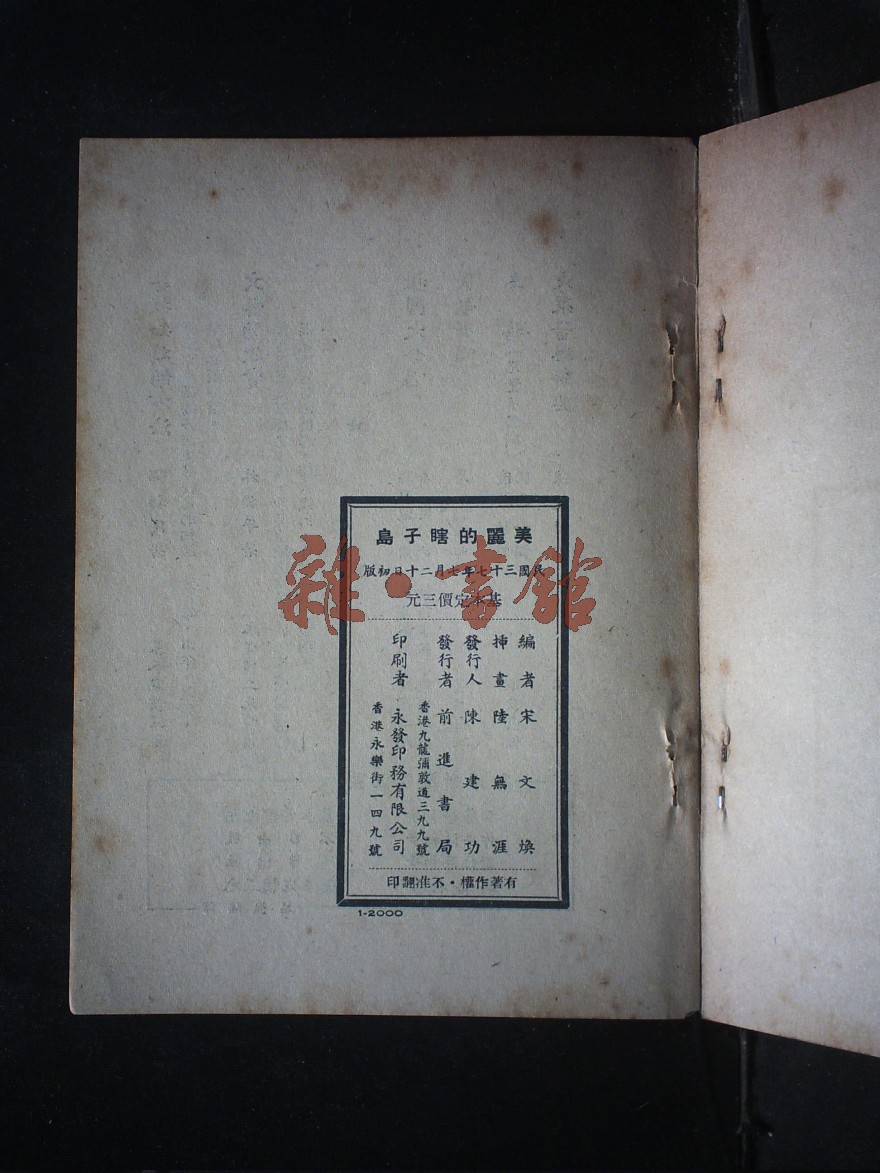 美麗的瞎子島
民國三十七年七月二十日初版
基本定價三元
編者 宋文煥
挿畫 陸無涯
發行人 陳建功
發行者 前進書局
香港九龍彌敦道三九九號
印刷者 永發印務有限公司
香港永樂街一四九號
有著作權・不准翻印
1-2000
雜・書館